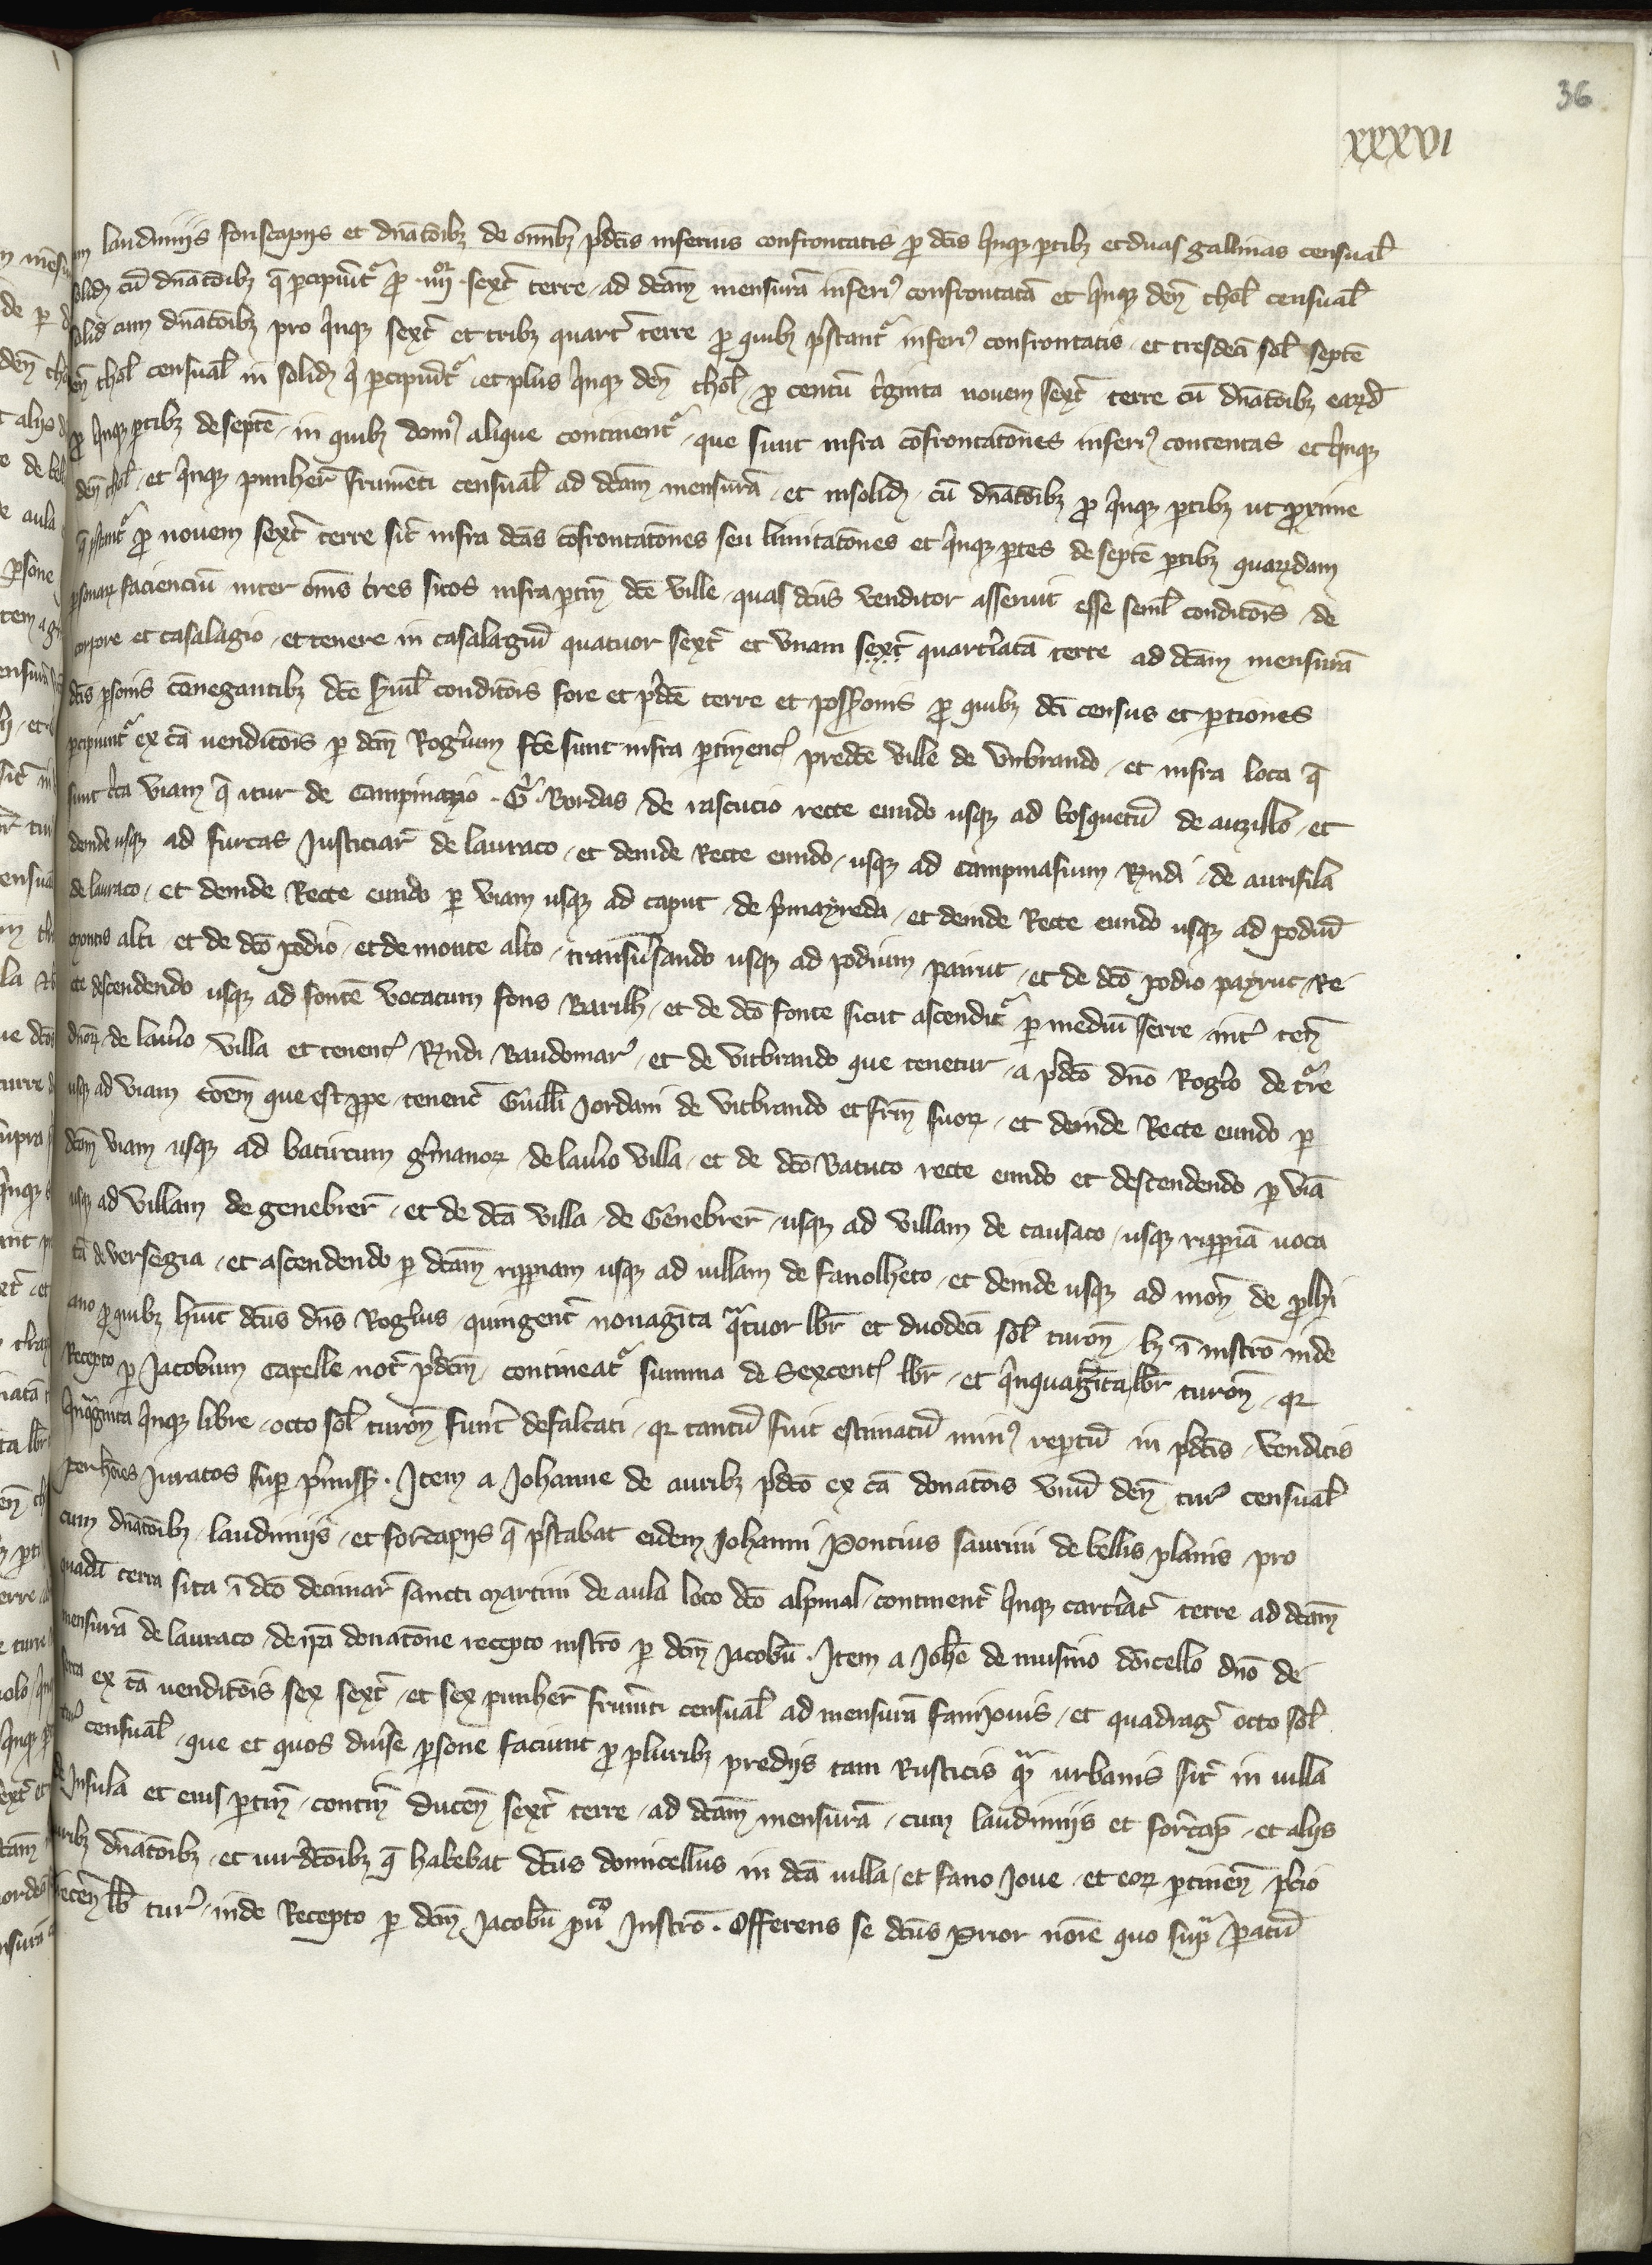 36
xxxvi
laudimiis foriscapiis et dnātōib3 de omīb3 p̄dcīs inferius confrontatis p dcīs qinq3 ptib3 et duas gallinas censual
solid3 cū dnātōib3 q̄ pcipiūtr p iiiior sext terre ad dcām mensurā inferi9 confrontatā et qinq3 den̄ thol censual
solid cum dnātōib3 pro qinq3 sext et trib3 quart terre p quib3 p̄stantr inferi9 confrontatis et tresdecī sol septē
den̄ thol censual in solid3 q pcipiūtr et plus qinq3 den̄ thol p centū tginta novem sext terre cū dnātōib3 earūd
p qinq3 ptib3 de septē in quib3 dom9 alique continentr que sunt infra cōfrontatōnes inferi9 contentas et qinq3
den̄ thol et qinq3 punher frumēti censual ad dcām mensurā et insolid3 cū dnātōib3 p qinq3 ptib3 ut pxime
q̄ p̄stantr p novem sext terre sit infra dcās cōfrontatōnes seu limitatōnes et qinq3 ptes de septē ptib3 quarūdam
psonar faciencium inter om̄s tres sitos infra ptin̄ dcē ville quas dcūs venditor asseruit esse seml conditōis de
corpore et casalagio et tenere in casalagiū quatuor sext et unam sext quartiatā terre ad dcām mensurā
dcīs psonis cōnegantib3 dcē syml conditōis fore et p̄dcē terre et possyonis p quib3 dcī census et ptiones
pcipiuntr ex cā venditōis p dcm̄ Rog̃ium scē sunt infra ptinenc̄ predcē ville de vitbrando et infra loca q̄
sunt cca viam q̄ itur de campmazio G Bordas de rascucio recte eundo usq3 ad bosquetū de auzillo et
deinde usq3 ad furcas Justiciar de lauraco et deinde Recte eundo usq3 ad campmasium Rndi de aurifila
de lauraco et deinde Recte eundo p viam usq3 ad caput de pmayreda et deinde Recte eundo usq3 ad podiū
montis alti et de dcō podio et de monte alto transūsando usq3 ad podium pairut et de dcō podio payrut Re
cte descendendo usq3 ad fontē vocatum fons Barilh et de dcō fonte sicut ascenditr p mediū serre int ten̄
dnor de laūo villa et tenenc̄ Rndi Baudomar et de vitbrando que tenetur a p̄dcō dnō Rog̃io de tre
usq3 ad viam cōem̄ que est ppe tenenc̄ Guill̄i Jordani de vitbrando et fr̄m suor et deinde Recte eundo p
dcām viam usq3 ad batutum g̃manor de laūo villa et de dcō Batuto recte eundo et descendendo p viā
usq3 ad villam de genebrer et de dcā villa de Genebrer usq3 ad villam de causaco usq3 rippiā voca
tā de versegia et ascendendo p dcām rippiam usq3 ad villam de fanolheto et deinde usq3 ad mon̄ de plhi
ano p quib3 huit dcūs dns Rog̃ius quingent nonagīta qatuor lbr et duodecī sol turon̄ l3 ī instrō inde
Recepto p Jacobum Capelle not p̄dcm̄ contineatr summa de Sexcent lbr et qinquagīta lbr turon̄ qr
qinquaginta qinq3 libre octo sol turon̄ fuer defalcati qr tantū fuit estimatū min9 reptū in p̄dcīs venditis
per hoīes Juratos sup p̄miss. Item a Johanne de aurib3 p̄dcō ex cā donatōis unū den̄ tur censual
cum dnātōib3 laudimiis et foriscapiis q̄ p̄stabat eidem Johanni Poncius saurini de bellis planis pro
quadā terra sita ī dcō decimar sancti martini de aula loco dcō alpinal continent qinq3 cartiat terre ad dcām
mensurā de lauraco de ip̄ā donatōne recepto instrō p dcm̄ Jacobū. Item a Johe de insino dōicello dnō de
ex cā venditōis sex sext et sex punher frumti censual ad mensurā fanijovis et quadrag octo sol
tur censual que et quos diūse psone faciunt p plurib3 prediis tam Rusticis qm urbanis sit in villa
de Insula et eius ptin̄ contin̄ ducen̄ sext terre ad dcām mensurā cum laudimiis et foriscap et aliis
iurib3 dnātōib3 et iurdcōib3 q̄ habebat dcūs domicellus in dcā villa et fano Jove et eor ptinen̄ p̄cio
tur inde Recepto p dcm̄ Jacobū pu^co Instrō. Offerens se dcūs Prior nōīe quo sup̄ patū